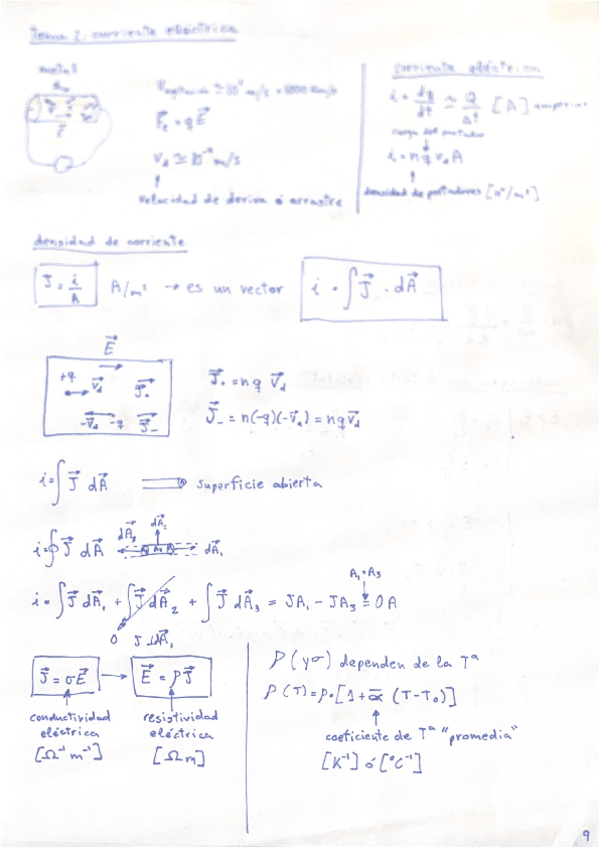 Tema 2: corriente eléctrica
metal
V agitación ≃ 10⁶ m/s
F⃗e = qE⃗
Vd ≃ 10⁻⁴ m/s
velocidad de deriva ó arrastre
corriente eléctrica
i = dq/dt ≃ Q/Δt [A] amperios
carga del portador
i = n q vd A
densidad de portadores [nº/m³]
densidad de corriente
J = i/A A/m² → es un vector i = ∫ J⃗ · dA⃗
E⃗
+q v⃗d J⃗+
-v⃗d -q J⃗-
J⃗+ = nq V⃗d
J⃗- = n(-q)(-V⃗d) = nqV⃗d
i = ∫ J⃗ dA⃗ superficie abierta
i = ∮ J⃗ dA⃗ dA⃗3 dA⃗2 dA⃗1
A1 = A3
i = ∫ J⃗ dA⃗1 + ∫ J⃗ dA⃗2 + ∫ J⃗ dA⃗3 = JA1 - JA3 = 0 A
0 J ⊥ dA⃗2
J⃗ = σE⃗ → E⃗ = ρJ⃗
conductividad eléctrica
[Ω⁻¹ m⁻¹]
resistividad eléctrica
[Ω m]
ρ (y σ) dependen de la Tª
ρ(T) = ρ0 [1 + α̅ (T - T0)]
coeficiente de Tª "promedia"
[K⁻¹] ó [°C⁻¹]
9